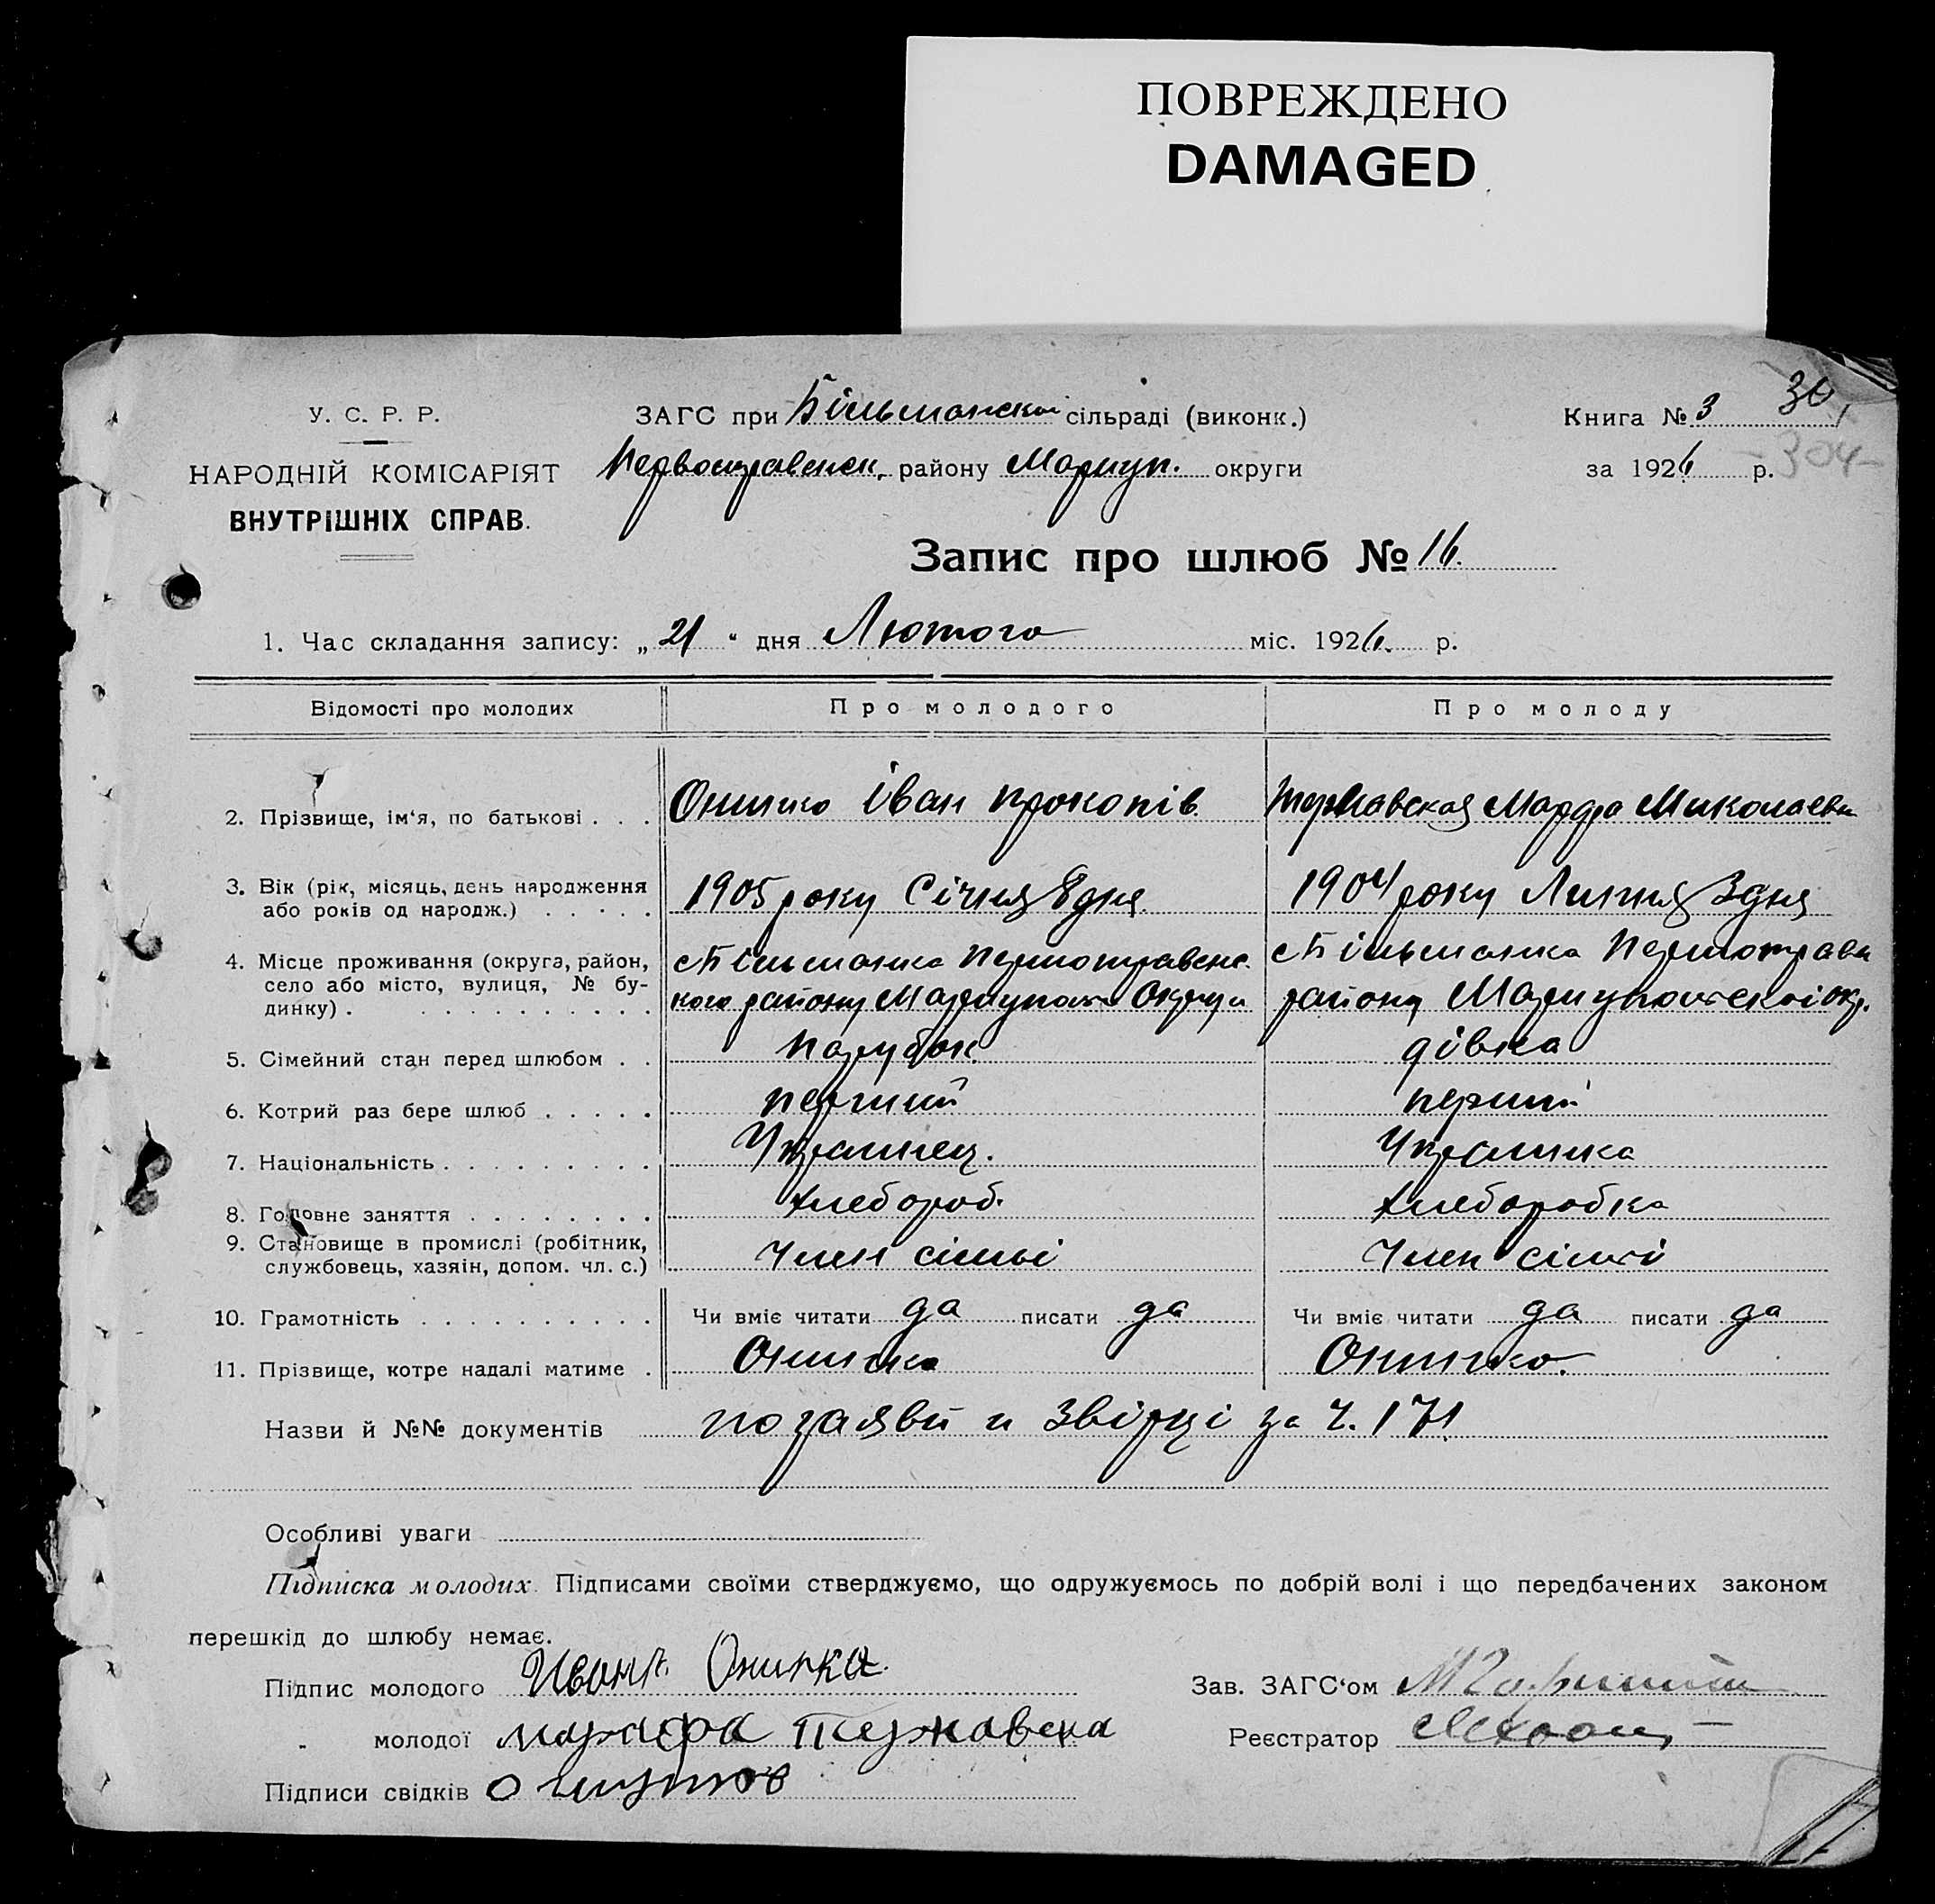 ПОВРЕЖДЕНО
DAMAGED
У. С. Р. Р.
НАРОДНІЙ КОМІСАРІЯТ
ВНУТРІШНІХ СПРАВ.
ЗАГС при Більманской сільраді (виконк.)
Первотравенск. району Мариуп. округи
Книга № 3
30
за 1926 р.
304
Запис про шлюб № 16.
1. Час складання запису: „21“ дня Лютого міс. 1926. р.
Відомості про молодих Про молодого Про молоду
2. Прізвище, ім'я, по батькові . . . Онишко Іван Прокопів. Марфа Миколаевн
3. Вік (рік, місяць, день народження 1905 року Січня 8 дня 1904 року Липня 3 дня
або років од народж.) . . . . .
4. Місце проживання (округа, район, с Більманка Первотравенс- с Більманка Первотравн
село або місто, вулиця, № бу- кого району Мариупольс Округи району Мариупольскоі окр.
динку) . . . . . . . . . . .
5. Сімейний стан перед шлюбом . . Парубок дівка
6. Котрий раз бере шлюб . . . . . перший перший
7. Національність . . . . . . . . . Украинец. Украинка
8. Головне заняття . . . . . . . . Хлебороб. Хлеборобка
9. Становище в промислі (робітник, Член сімьі Член сімьі
службовець, хазяін, допом. чл. с.)
10. Грамотність . . . . . . . . . . Чи вміє читати да писати да Чи вміє читати да писати да
11. Прізвище, котре надалі матиме . Онишко Онишко.
Назви й №№ документів по заяви и звірці за Ч. 171
Особливі уваги
Підписка молодих. Підписами своїми стверджуємо, що одружуємось по добрій волі і що передбачених законом
перешкід до шлюбу немає.
Підпис молодого Иванъ Онишка
Зав. ЗАГС'ом
„ молодої марфа Тержавска
Реєстратор
Підписи свідків